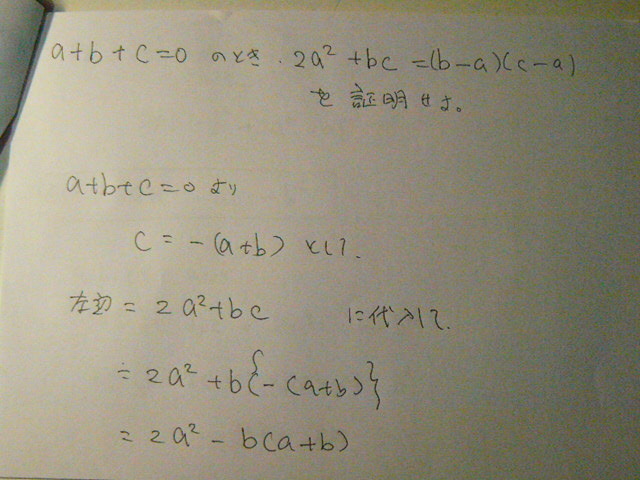 a+b+c=0 のとき. 2a²+bc=(b-a)(c-a)
を証明せよ。
a+b+c=0 より
c=-(a+b) として.
左辺=2a²+bc に代入して.
=2a²+b{-(a+b)}
=2a²-b(a+b)